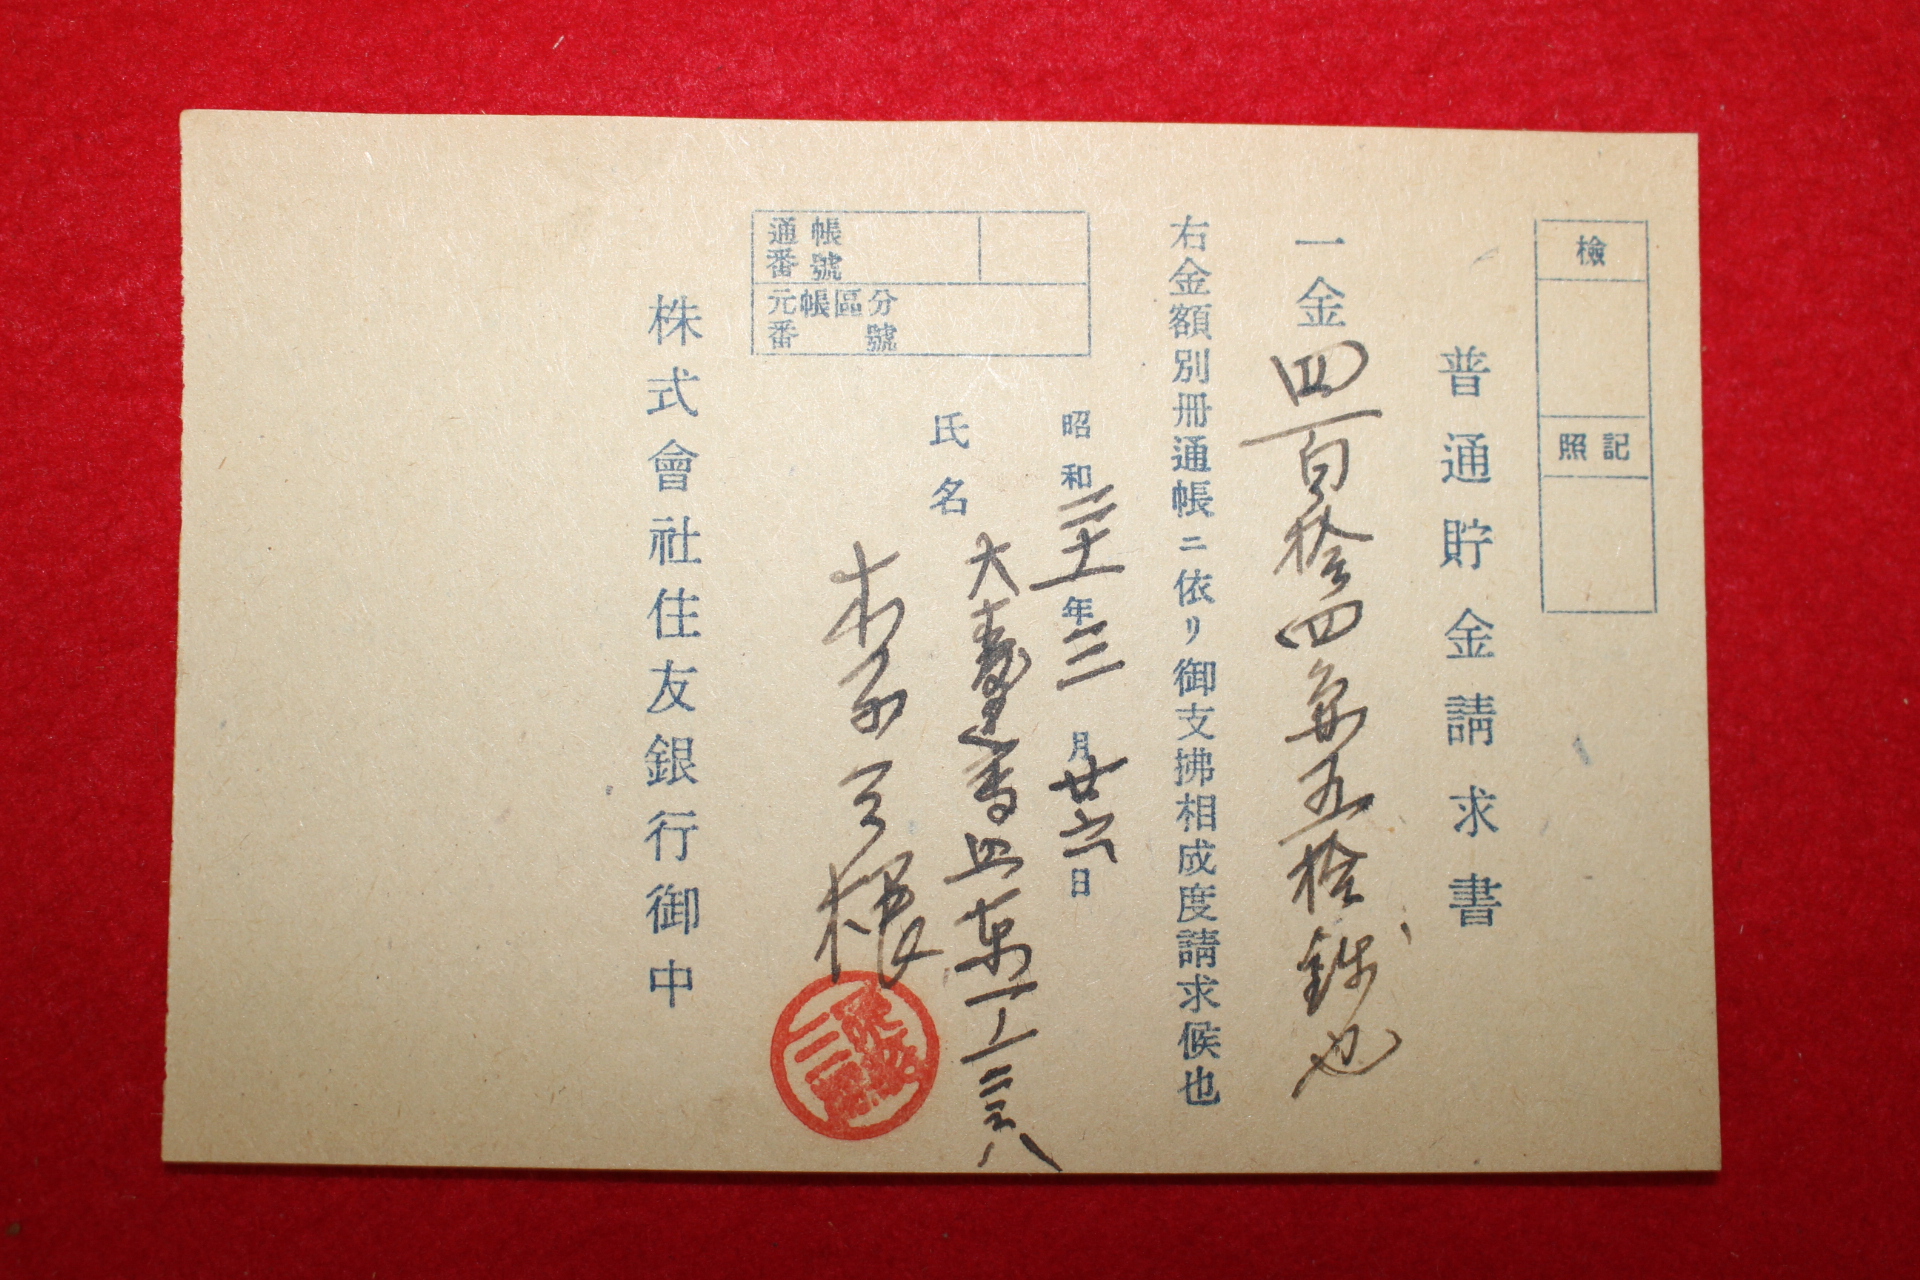 檢
照記
普通貯金請求書
一金四百拾四円五拾銭也
右金額別冊通帳ニ依リ御支拂相成度請求候也
昭和二十年三月廿六日
通帳番號
元帳區分番號
氏名
株式會社住友銀行御中